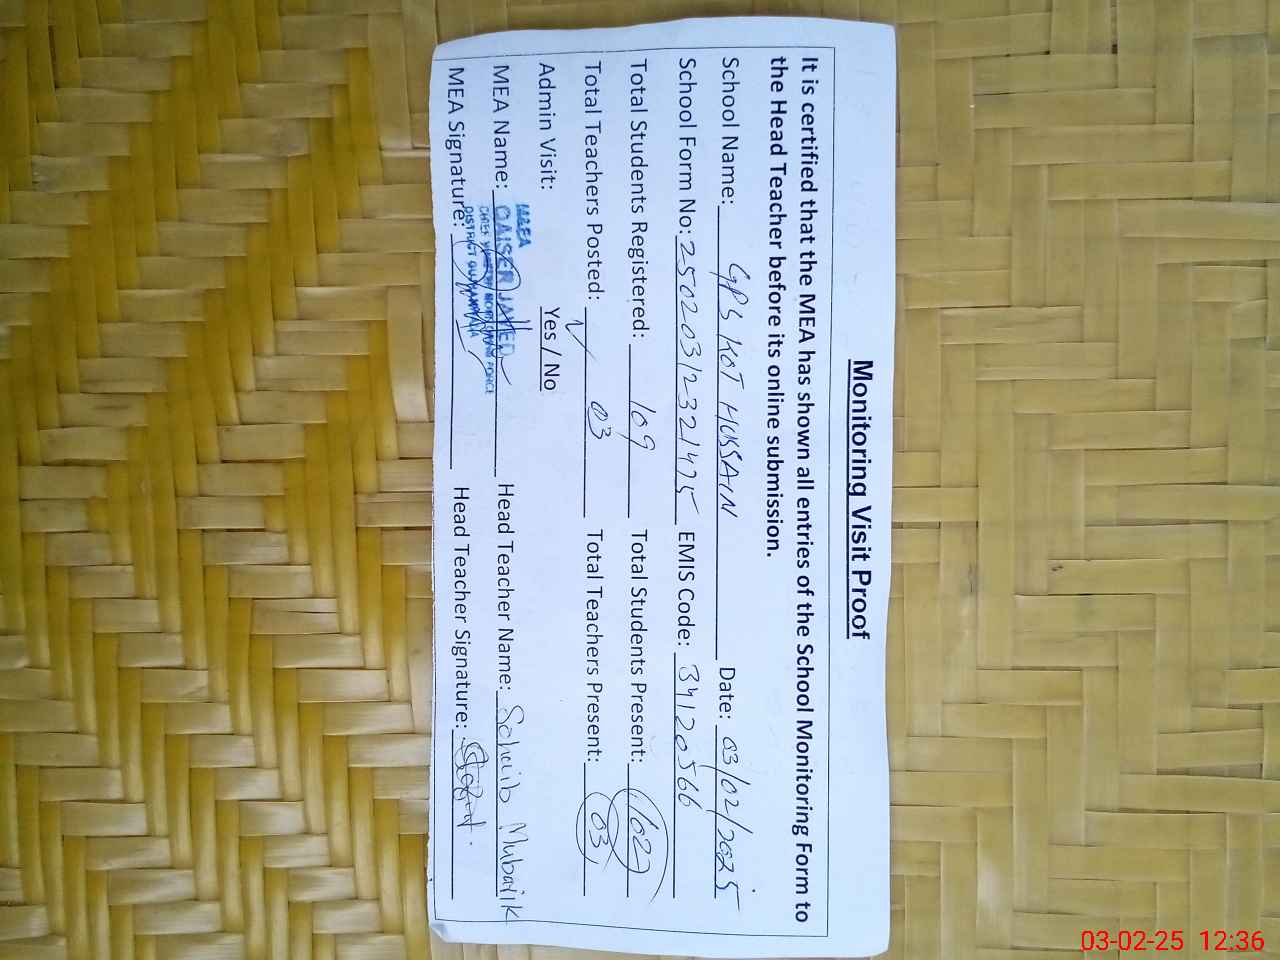 Monitoring Visit Proof
It is certified that the MEA has shown all entries of the School Monitoring Form to
the Head Teacher before its online submission.
School Name: GPS KOT HUSSAIN Date: 03/02/2025
School Form No: 25020312321475 EMIS Code: 34120566
Total Students Registered: 109 Total Students Present: 102
Total Teachers Posted: 03 Total Teachers Present: 03
Admin Visit: Yes / No
M&EA
MEA Name: QAISER JAVED Head Teacher Name: Sohaib Mubarik
CHIEF MONITORING FORCE
DISTRICT GUJRANWALA
MEA Signature: Head Teacher Signature:
03-02-25 12:36